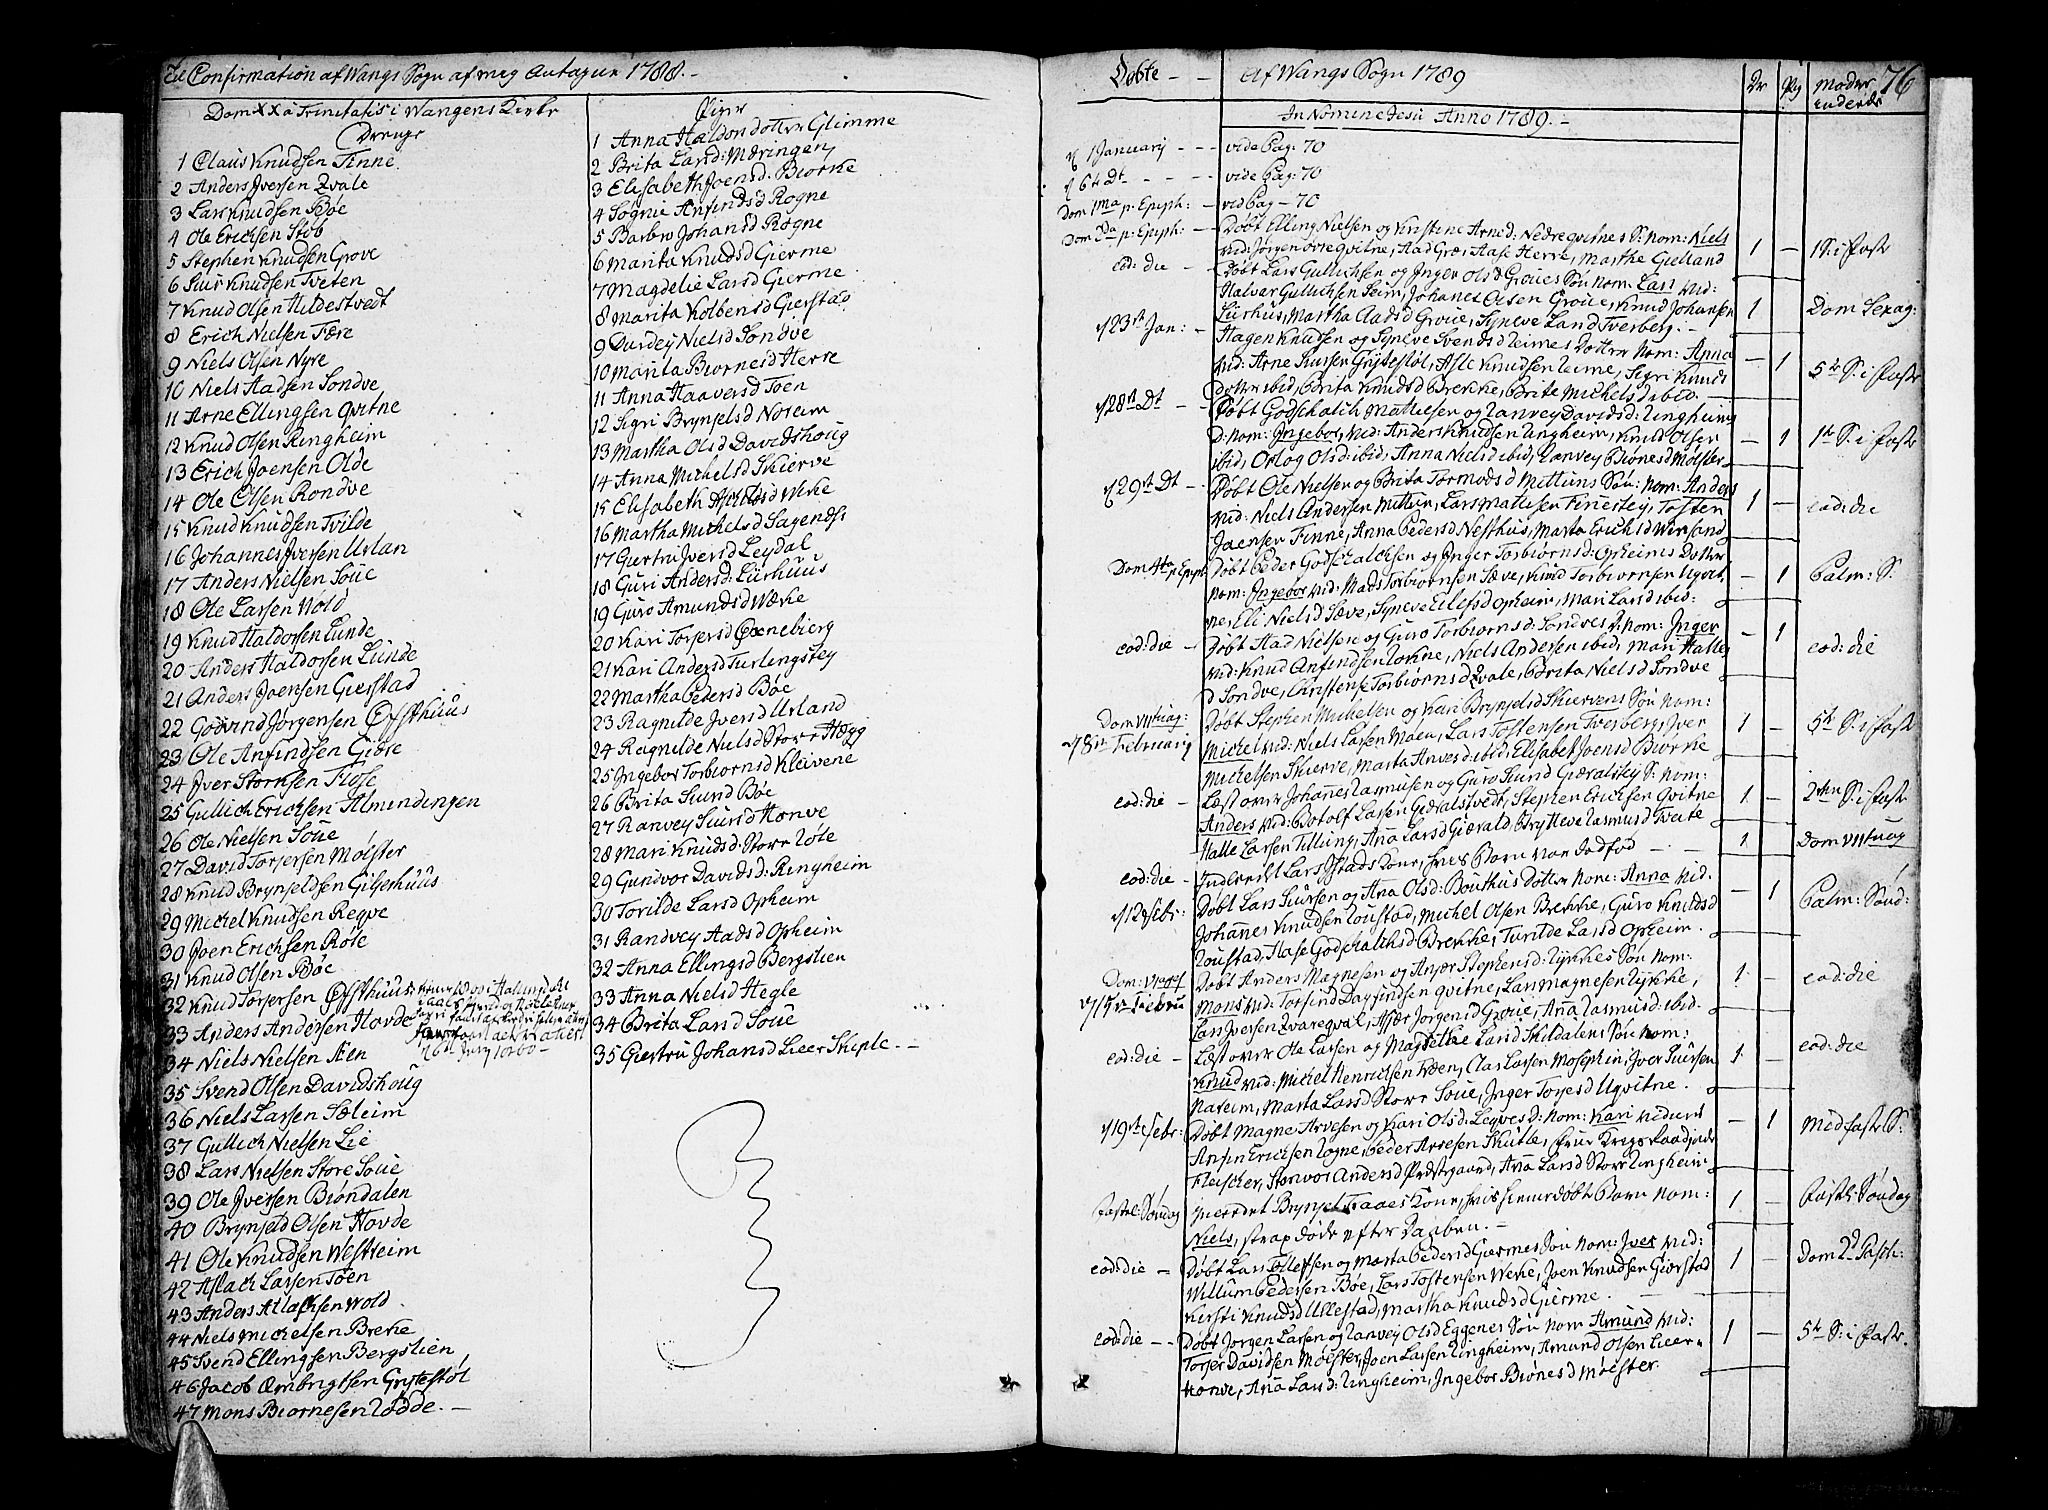 Til Confirmation af Wangs Sogn af meg Antagne 1788.-
Dom XX a Trinitatis i Wangens Kirke
Drenge
1 Claus Knudsen Finne
2 Anders Iversen Qvale
3 Lars Knudsen Bøe
4 Ole Erichsen Støb
5 Stephen Knudsen Grove
6 Siur Knudsen Tveten
7 Knud Olsen Hildestvedt
8 Erich Nielsen Fære
9 Niels Olsen Nyre
10 Niels Aadsen Sondve
11 Arne Ellingsen Qvitne
12 Knud Olsen Ringheim
13 Erich Joensen Olde
14 Ole Olsen Rondve
15 Knud Knudsen Tvilde
16 Johannes Iversen Urlan
17 Anders Nielsen Soue
18 Ole Larsen Wold
19 Knud Haldorsen Lunde
20 Anders Haldorsen Lunde
21 Anders Joensen Gierstad
22 Godvind Jørgensen Offthuus
23 Ole Anfindsen Giøse
24 Iver Storksen Flose
25 Gullich Erichsen Almendingen
26 Ole Nielsen Soue
27 David Torjersen Mølster
28 Knud Brynjeldsen Giljerhuus
29 Michel Knudsen Reqve
30 Joen Erichsen Rote
31 Knud Olsen Bøe
32 Knud Torjersen Offthuus
33 Anders Andersen Hovde
34 Niels Nielsen Æen
35 Svend Olsen Davidshoug
36 Niels Larsen Sæleim
37 Gullich Nielsen Lie
38 Lars Nielsen Store Soue
39 Ole Iversen Biøndalen
40 Brynjeld Olsen Hovde
41 Ole Knudsen Westreim
42 Aslach Larsen Tøen
43 Anders Atlachsen Wold
44 Niels Michelsen Breke
45 Svend Ellingsen Bergslien
46 Jacob Ombrigtsen Grytestøl
47 Mons Biørnesen Rødde. -
Piger
1 Anna Haldorsdotter Glimme
2 Brita Larsd: Mæringen
3 Elisabeth Joensd: Biørke
4 Sognie Anfindsd Rogne
5 Barbro Johansd Rogne
6 Marita Knudsd Gierme
7 Magdelie Larsd Gierme
8 Marita Kolbensd Gierstad
9 Durdey Nielsd Sondve
10 Marita Biørnesd Herre
11 Anna Haaversd Tøen
12 Sigri Brynjelsd Noreim
13 Martha Olsd Davidshoug
14 Anna Michelsd Skierve
15 Elisabeth Achlesd Weke
16 Martha Michelsd Sagendsi
17 Giertru Iversd Leydal
18 Guri Andersd: Liirhuus
19 Guro Amundsd Wæke
20 Kari Torjersd Grønebierg
21 Kari Andersd Turlingstey
22 Martha Pedersd Bøe
23 Ragnilde Iversd Urland
24 Ragnilde Nielsd Store Hægg
25 Ingebor Torbiørnsd Kleivene
26 Brita Siursd Bøe
27 Ranvey Siursd Honve
28 Mari Knudsd: Store Rote
29 Gunvor Davidsd: Ringheim
30 Torilde Larsd Opheim
31 Randvey Aadsd Opheim
32 Anna Ellingsd Bergslien
33 Anna Nielsd Hegle
34 Brita Larsd Soue
35 Giertru Johansd Lieer Skiple. -
Døbte - - Af Wangs Sogn 1789 Dr Pg Mødre 76
Inderede
In Nomine Jesu Anno 1789. -
1 Januarij - - - vide Pag: 70
6te Dt - - - - vide Pag: 70
Dom 1ma p: Epiph: - vid Pag - 70
Dom 2da p: Epiph: - Døbt Elling Nielsen og Kristine Arnesd: Nedreqvitnes S: Nom: Niels
vid: Jørgen øvre qvitne, Aad Gro, Aase Herre, Marthe Gulland 1 - 1 S: i Faste
eod: die - Døbt Lars Gullichsen og Inger Olsd Groues Søn nom: Lars vid:
Halvar Gullichsen Seim, Johanes Olsen Groue, Knud Johansen
Liirhus, Martha Aadsd Groue, Syneve Larsd Tverberg. - 1 Dom Sexag:
23de Jan: - Hagen Knudsen og Syneve Svendsd Reimes Dotter Nom: Anna
vid: Arne Larsen Grytestøl, Asle Knudsen Reime, Sigri Knuds - 1 5te S: i Faste
Dotter ibid, Brita Knudsd Brekke, Brite Michelsd ibid. -
28de Dt - - Døbt Godschalch Matiesen og Ranvey Davidsd: Ringheims
D: nom: Ingebor, vid: Anders Knudsen Ringheim, Knud Olsen - 1 1te S: i Faste
ibid, Ortog Olsd: ibid, Anna Nielsd ibid, Ranvey Biørnesd Mølster
29de Dt - Døbt Ole Nielsen og Brita Tormodsd Mittuns Søn: Nom: Anders
vid: Niels Andersen Mittun, Lars Matiesen Finnestey, Tosten 1 - eod: die
Jaensen Finne, Anna Pedersd Nesthus, Marta Erichsd Winsand
Dom 4ta p: Epiph: Døbt Peder Godschalchsen og Inger Torbiørnsd: Opheims Dotter
nom: Ingebor vid: Mads Torbiørnsen Sæve, Knud Torbiørnsen Ugvit - 1 Palm: S.
ne, Eli Nielsd Sæve, Syneve Ellefsd Opheim, Mari Larsd ibid.
eod: die - Døbt Aad Nielsen og Guro Torbiørnsd: Sondves D: nom: Inger
vid: Knud Anfindsen Rokne, Niels Andersen ibid, Mari Halle - 1 eod: die
d Sondve, Christense Torbiørnsd Qvale, Brita Nielsd Sondve
Dom VIItuag: Døbt Stephen Michelsen og Kari Brynjelsd Skiervens Søn Nom:
8de Februarij Michel vid: Niels Larsen Møen, Lars Tostensen Tverberg, Iver 1 - 5te S: i Faste
Michelsen Skierve, Marta Anvesd: ibid, Elisabet Joensd Biørke
eod: die - Læst over Johannes Rasmusen og Guro Siursd Giæralstey S: nom:
Anders vid: Botolf Larsen Giæralstvedt, Stephen Erichsen Qvitne 1 - 2den S: i Faste
Halle Larsen Tilling, Ana Larsd Gierald, Brytteve Rasmusd Tveite
eod: die - Inderedt Lars Ystads Kone, hvis Barn var Dødfød - - 1 Dom VIItuag
12 Febr: Døbt Lars Siursen og Ana Olsd: Bøuthus Dotter nom: Anna vid. - 1 Palm: Sønd:
Johannes Knudsen Roustad, Michel Olsen Brekke, Guro Knudsd
Roustad, Aase Godschalchsd Brekke, Turilde Larsd Opheim.
Døbt Anders Magnesen og Anfær Stephensd: Rykkes Søn Nom:
Mons vid: Torfind Dagfindsen qvitne, Lars Magnesen Rykke, 1 - eod: die
Lars Iversen Qvareqval, Asfær Jørgensd Groue, Ana Rasmusd: ibid.
eod: die - Læst over Ole Larsen og Magdethe Larsd Skildalens Søn nom:
Knud vid: Michel Henrichsen Træen, Clas Larsen Mosephin, Joer Siursen 1 eod: die
Nareim, Marta Larsd Store Soue, Inger Torjesd Ugvitne.
19de Febr: Døbt Magne Arvesen og Kari Olsd: Leqves D: nom: Kari vid: - 1 Midfaste S:
Anfin Erichsen Rogne, Peder Arvesen Skutle, Frue Krigs Raadinde
Fleischer, Storvor Andersd Præstgaard, Ana Larsd Store Ringheim
Fastel: Søndag Inderedet Brynjel Traaes Kone, hvis hiemedøbt Barn Nom: 1 - Fastel: Søndag
Niels, strax døde efter Daaben. -
eod: die - Døbt Lars Ellefsen og Marta Pedersd Giermes Søn nom: Iver vid:
Willum Pedersen Bøe, Lars Tostensen Weke, Joen Knudsen Gierstad 1 - Dom 2d Pasch:
Kersti Knudsd Ullestad, Martha Knudsd Gierme.
eod: die - - Døbt Jørgen Larsen og Ranvey Olsd Eggenes Søn Nom Amund vid: 1 - 5te S: i Faste.
Torjer Davidsen Mølster, Joen Larsen Ringheim, Amund Olsen Lieer-
Honve, Ana Larsd: Ringheim, Ingebor Biørnesd Mølster.